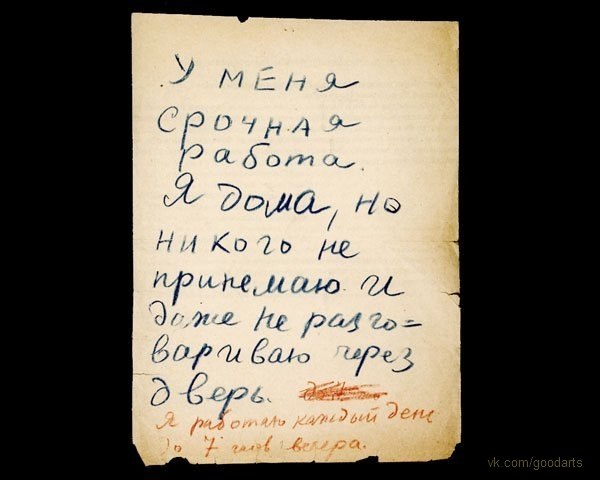 У МЕНЯ
СРОЧНАЯ
работа.
Я дома, но
никого не
принемаю и
даже не разго=
вариваю через
дверь.
Я работаю каждый день
до 7 часов вечера.
vk.com/goodarts